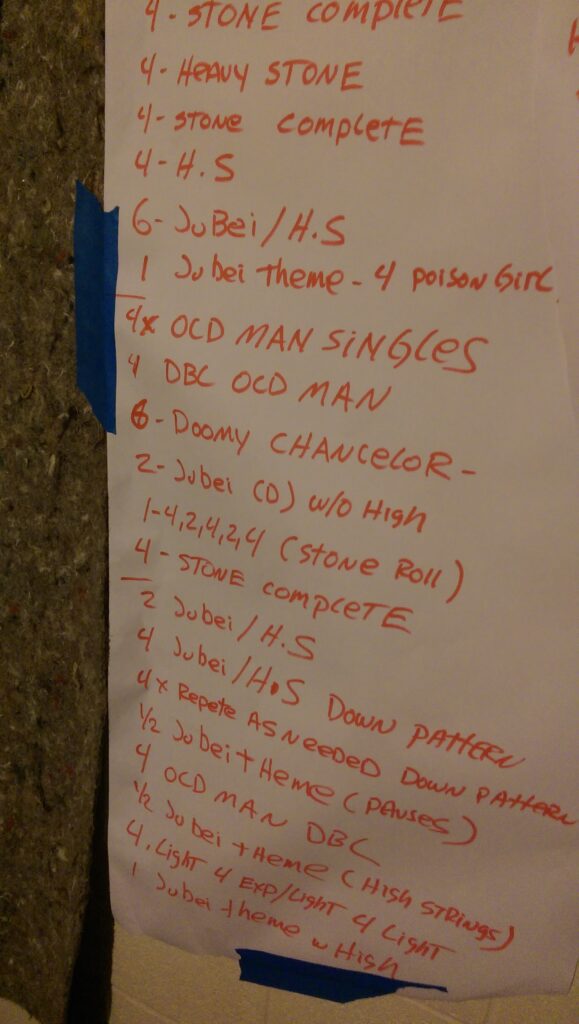 4 - STONE COMPLETE
4 - HEAVY STONE
4 - STONE COMPLETE
4 - H.S
6 - JuBei / H.S
1 Jubei theme - 4 POISON GIRL
4x OCD MAN SINGLES
4 DBC OCD MAN
6 - DOOMY CHANCELOR -
2 - Jubei (D) w/o High
1-4,2,4,2,4 (STONE ROll)
4 - STONE COMPLETE
2 Jubei / H.S
4 Jubei / H.S DOWN PATTERN
4x Repete AS NEEDED DOWN PATTERN
1/2 Jubei tHeme (PAUSES)
4 OCD MAN DBC
1/2 Jubei tHeme (HIGH STRINGS)
4. Light 4 EXP/Light 4 Light
1 Jubei theme w High